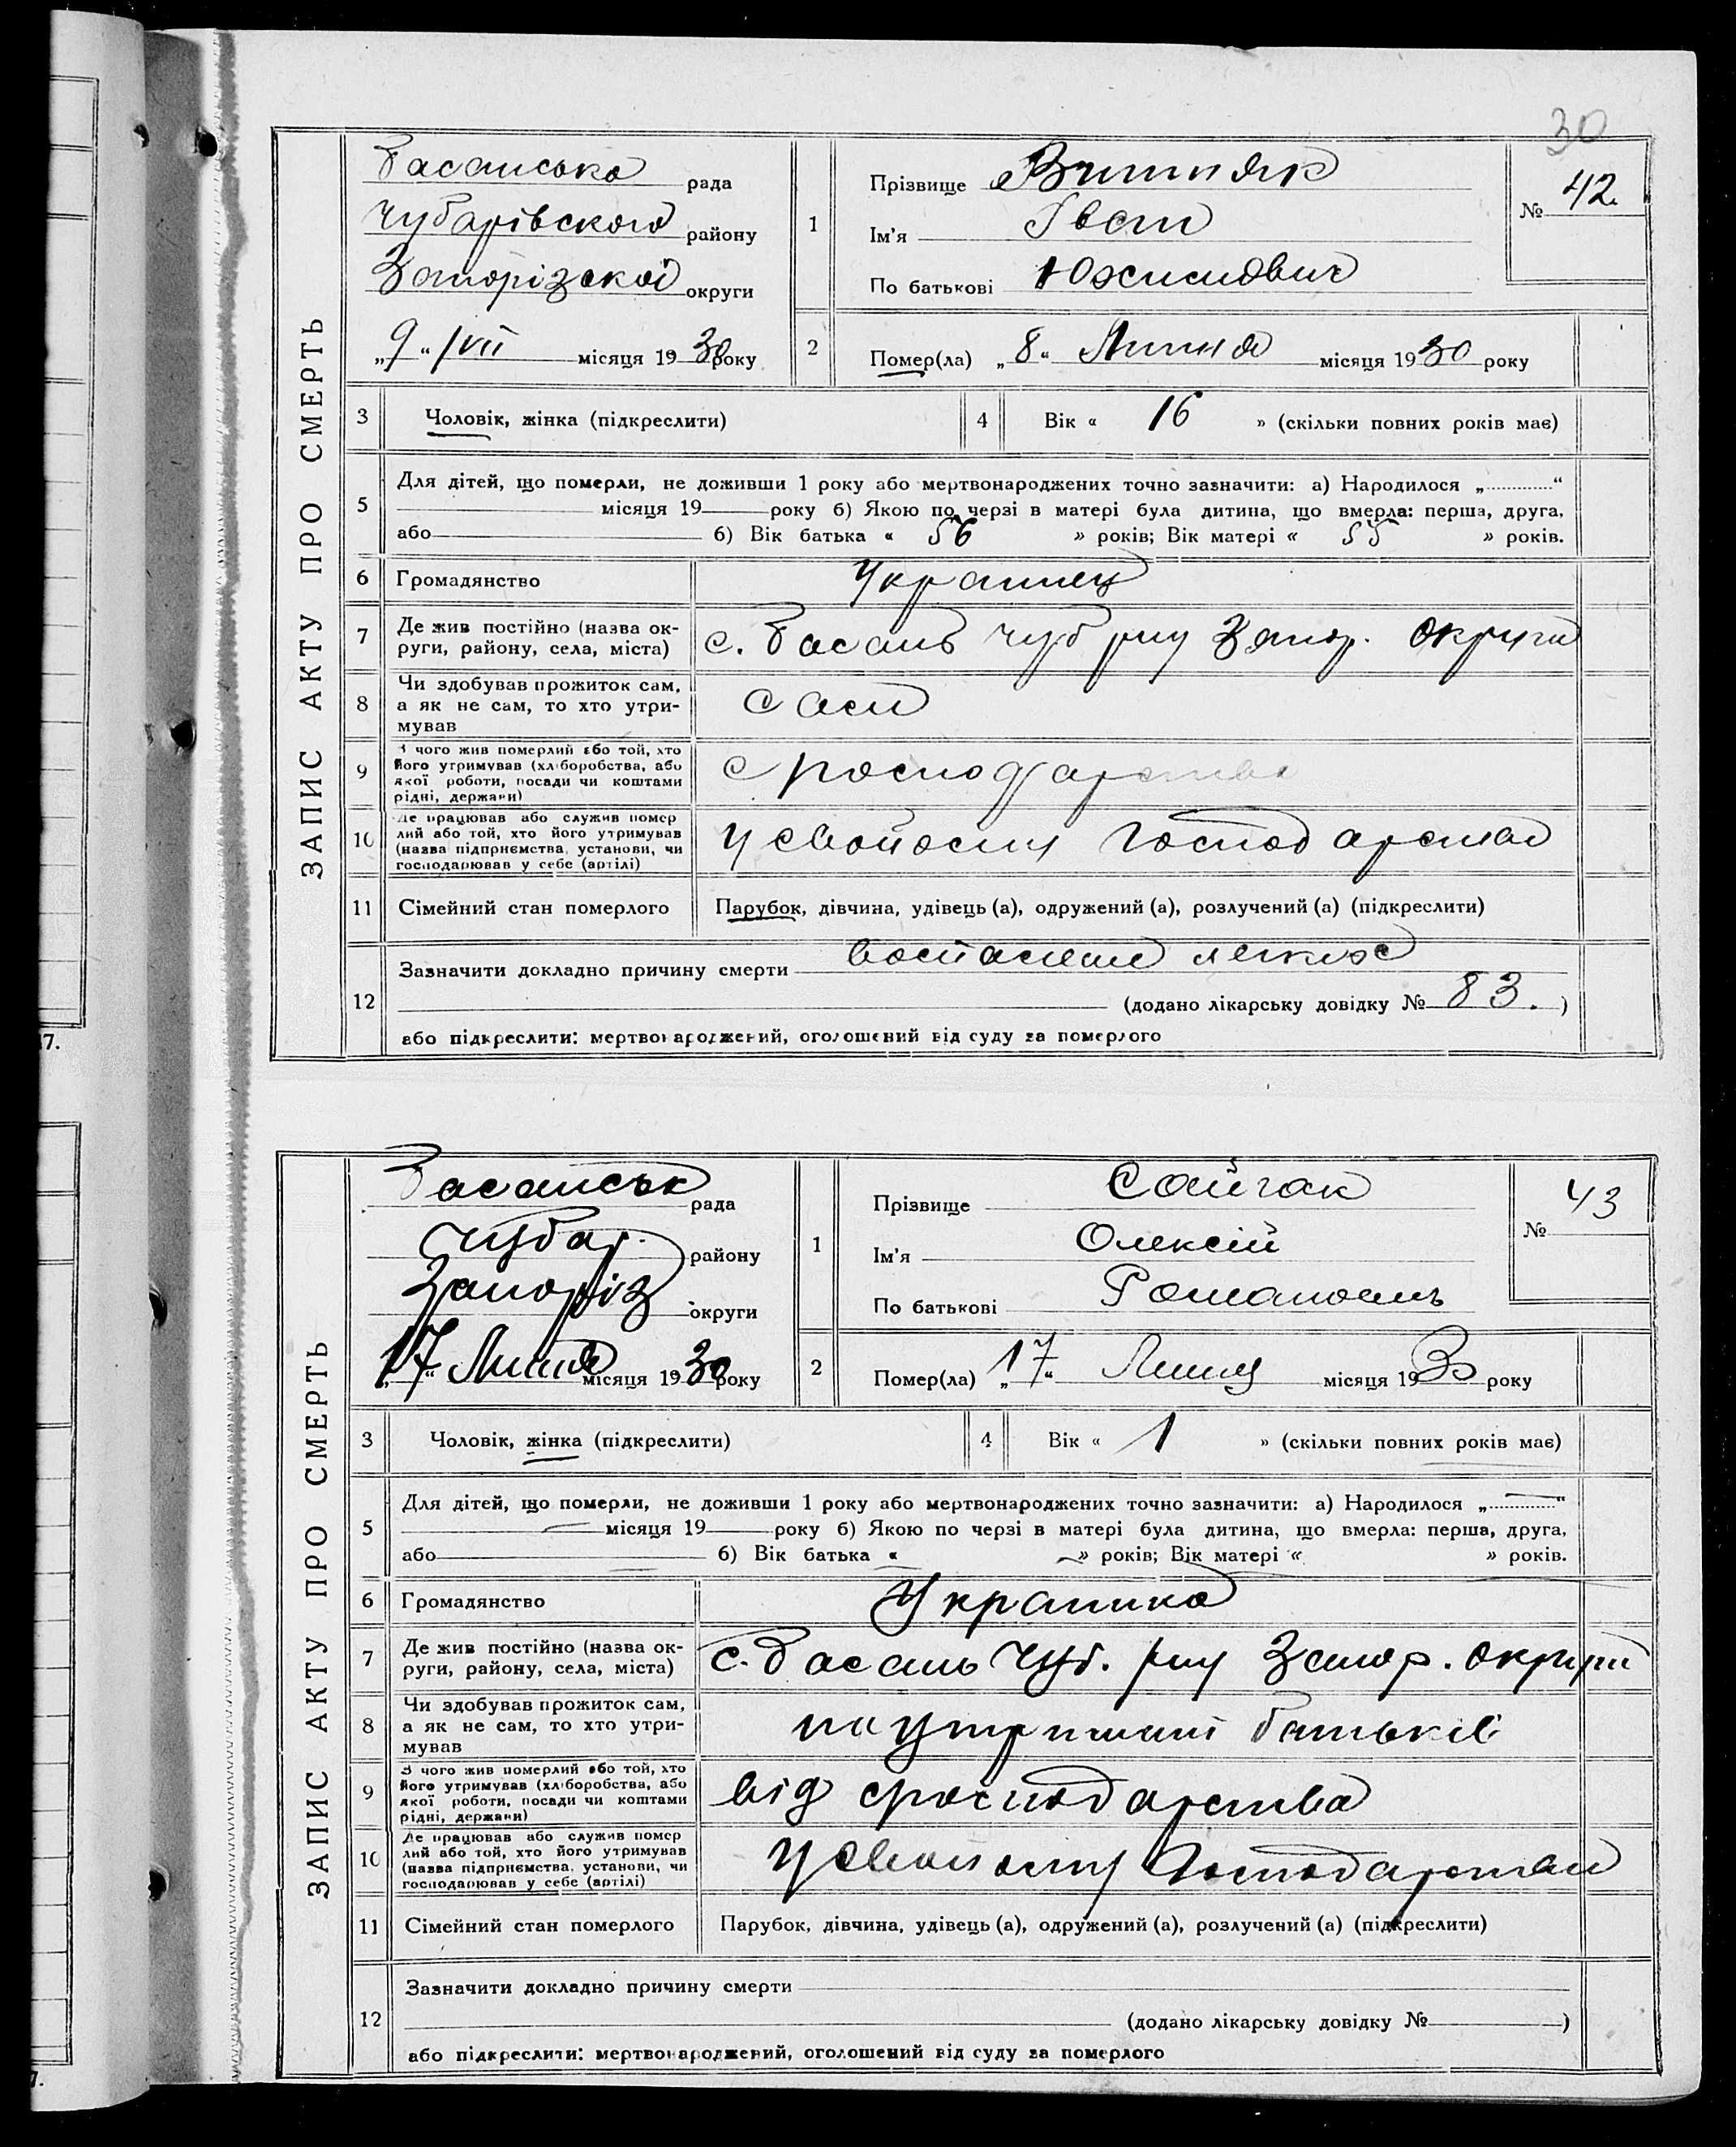 30
ЗАПИС АКТУ ПРО СМЕРТЬ
Басанська рада
Чубарівського району
Запорізської округи
„9“ /VII місяця 1930 року
1
Прізвище Вишняк
Ім'я Іван
По батькові
№ 42.
2
Помер(ла) „8“ Липня місяця 1930 року
3 Чоловік, жінка (підкреслити)
4 Вік « 16 » (скільки повних років має)
5 Для дітей, що померли, не доживши 1 року або мертвонароджених точно зазначити: а) Народилося „ “
місяця 19 року б) Якою по черзі в матері була дитина, що вмерла: перша, друга,
або б) Вік батька « 56 » років; Вік матері « 55 » років.
6 Громадянство Украинец
7 Де жив постійно (назва ок-
руги, району, села, міста) с. Басань Чуб рну Запор. округи
8 Чи здобував прожиток сам,
а як не сам, то хто утри-
мував
сам
9 З чого жив померлий або той, хто
його утримував (хліборобства, або
якої роботи, посади чи коштами
рідні, держави)
10 Де працював або служив помер
лий або той, хто його утримував
(назва підприємства, установи, чи
господарював у себе (артілі)
у свойому господарстві
11 Сімейний стан померлого Парубок, дівчина, удівець (а), одружений (а), розлучений (а) (підкреслити)
12 Зазначити докладно причину смерти воспаление легких
(додано лікарську довідку № 83. )
або підкреслити: мертвонароджений, оголошений від суду за померлого
7.
ЗАПИС АКТУ ПРО СМЕРТЬ
Басанськ рада
Чубар. району
Запоріз округи
„17“ Липня місяця 1930 року
1
Прізвище Сайгак
Ім'я Олексій
По батькові
№ 43
2
Помер(ла) „17“ місяця 1930 року
3 Чоловік, жінка (підкреслити)
4 Вік « 1 » (скільки повних років має)
5 Для дітей, що померли, не доживши 1 року або мертвонароджених точно зазначити: а) Народилося „ “
місяця 19 року б) Якою по черзі в матері була дитина, що вмерла: перша, друга,
або б) Вік батька « » років; Вік матері « » років.
6 Громадянство Украинка
7 Де жив постійно (назва ок-
руги, району, села, міста) с. Басань Чуб. рну Запор. округи
8 Чи здобував прожиток сам,
а як не сам, то хто утри-
мував
на утриманні батьків
9 З чого жив померлий або той, хто
його утримував (хліборобства, або
якої роботи, посади чи коштами
рідні, держави)
від
10 Де працював або служив помер
лий або той, хто його утримував
(назва підприємства, установи, чи
господарював у себе (артілі)
у свойому господарстві
11 Сімейний стан померлого Парубок, дівчина, удівець (а), одружений (а), розлучений (а) (підкреслити)
12 Зазначити докладно причину смерти
(додано лікарську довідку № )
або підкреслити: мертвонароджений, оголошений від суду за померлого
7.